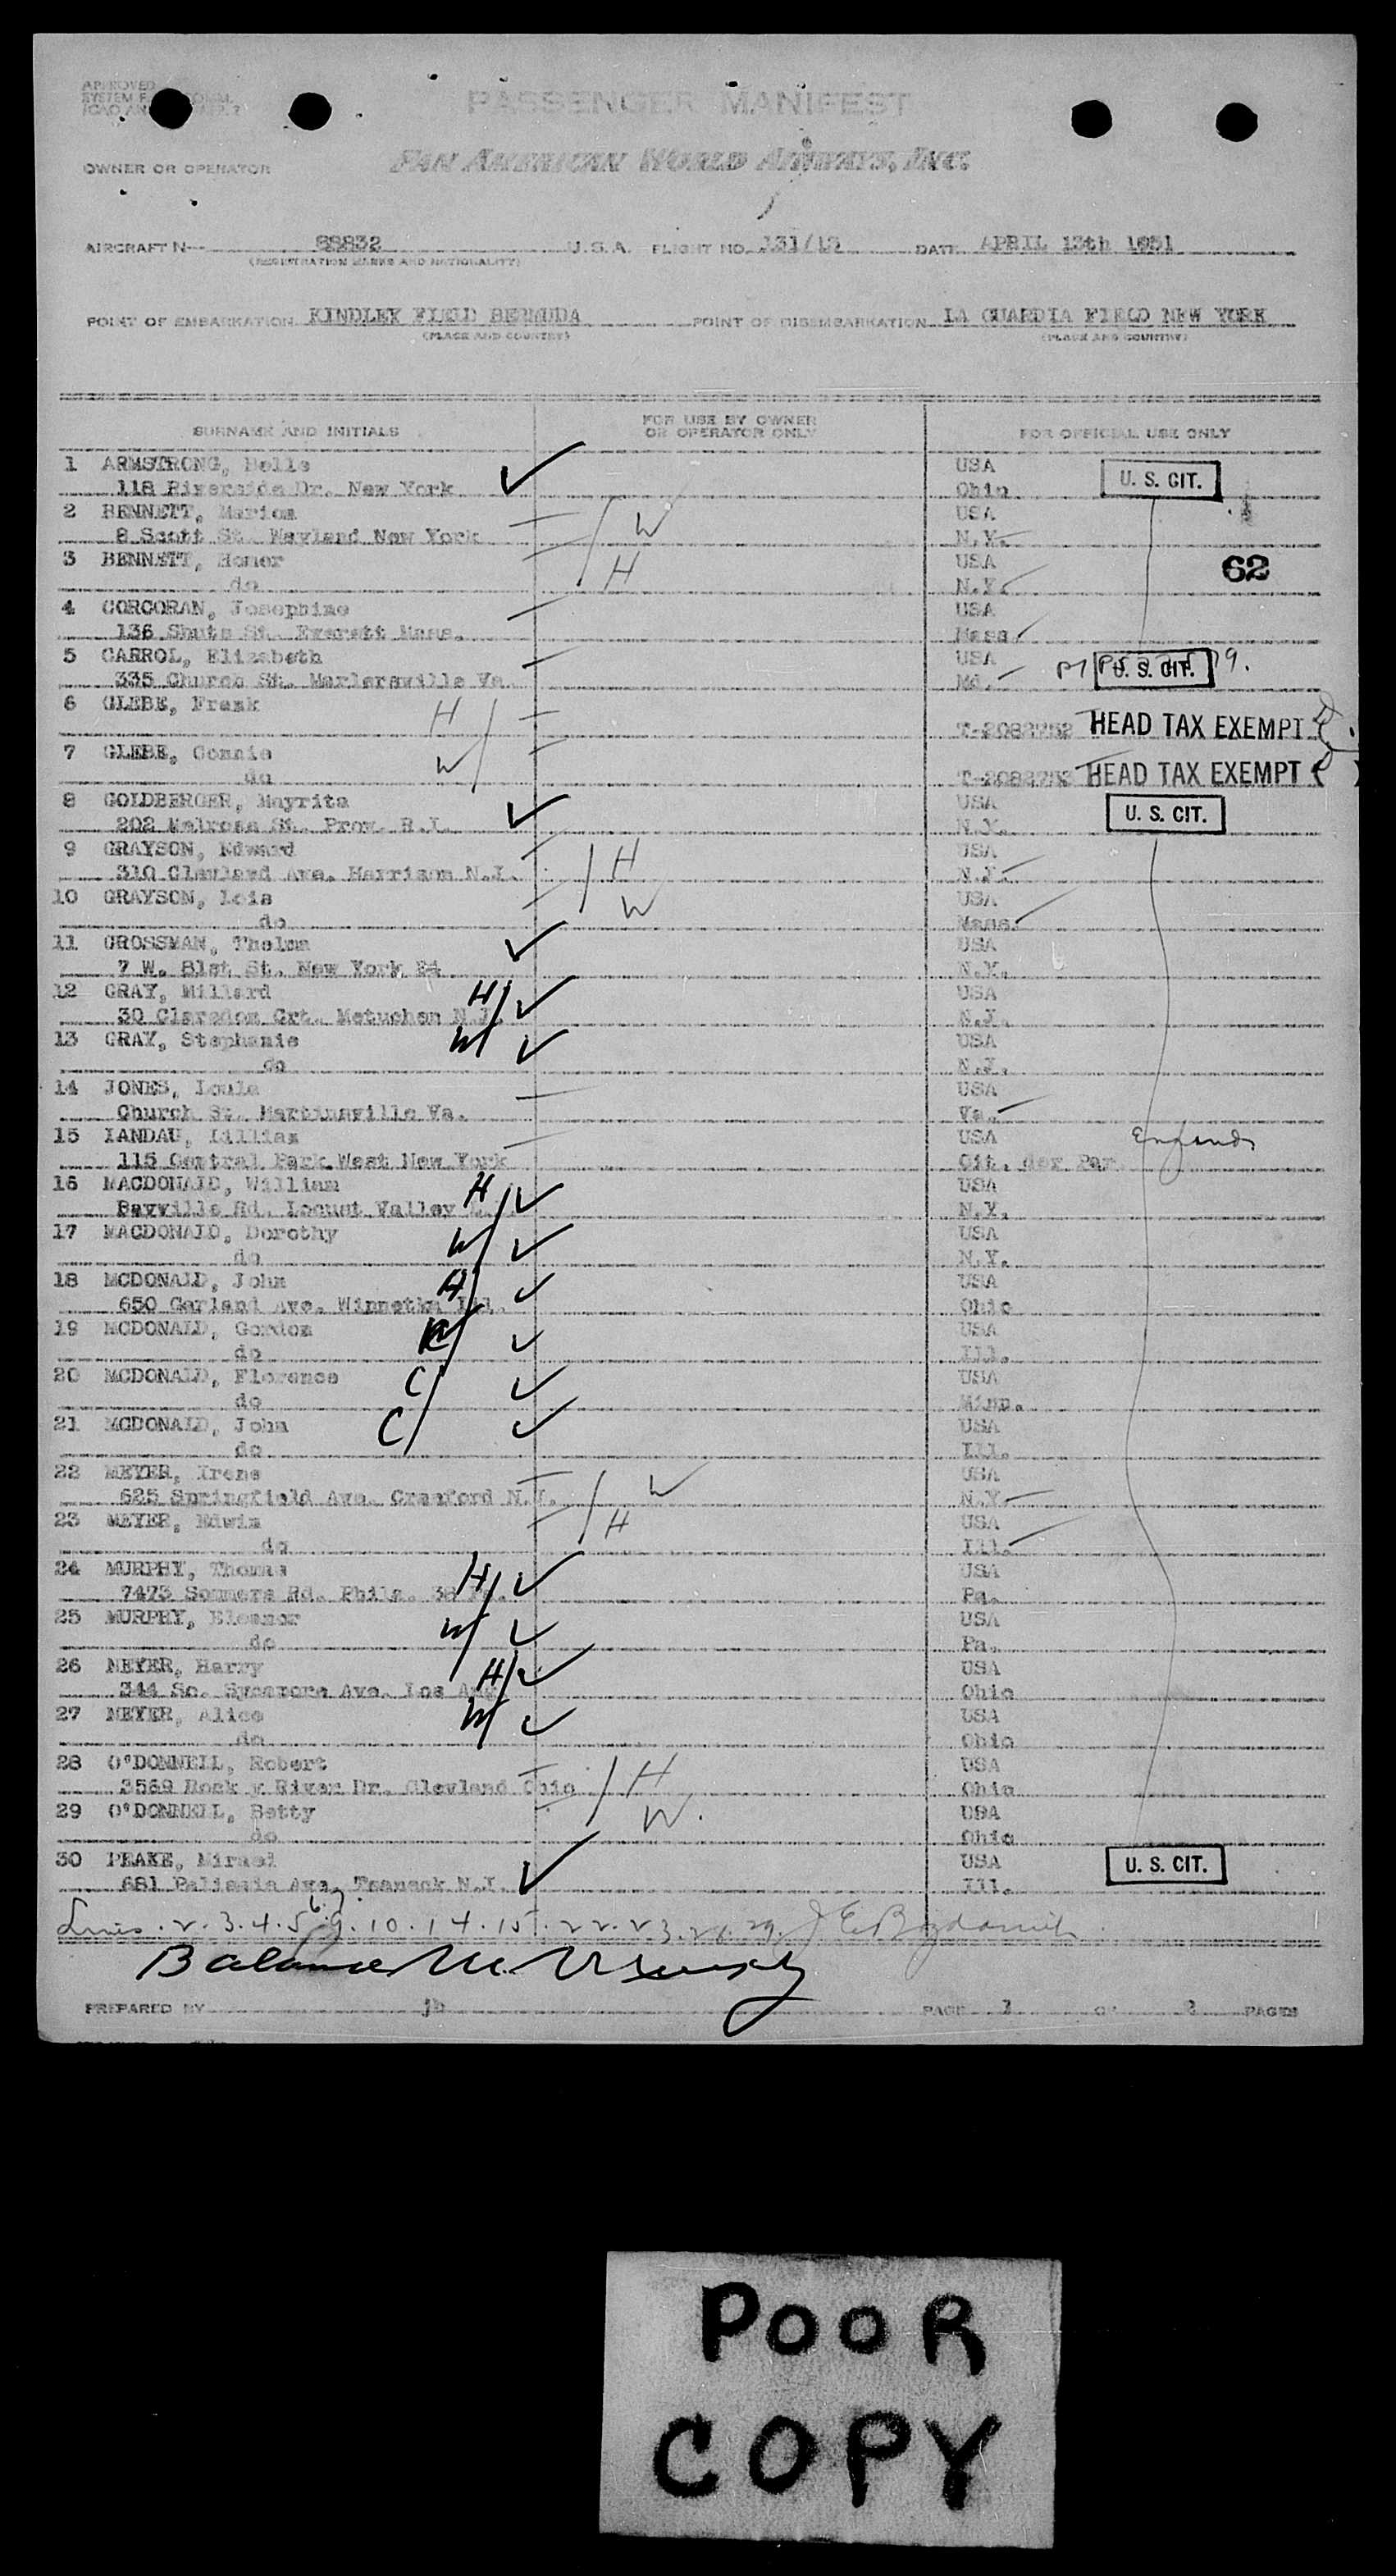 APPROVED
PASSENGER MANIFEST
OWNER OR OPERATOR PAN AMERICAN WORLD AIRWAYS, INC.
AIRCRAFT N 88832 U.S.A. FLIGHT NO. 131/13 DATE APRIL 13th 1951
(REGISTRATION MARKS AND NATIONALITY)
POINT OF EMBARKATION KINDLEY FIELD BERMUDA POINT OF DISEMBARKATION LA GUARDIA FIELD NEW YORK
(PLACE AND COUNTRY) (PLACE AND COUNTRY)
SURNAME AND INITIALS FOR USE BY OWNER OR OPERATOR ONLY FOR OFFICIAL USE ONLY
1 ARMSTRONG, Belle USA U. S. CIT.
118 Riverside Dr. New York Ohio
2 BENNETT, Marion W USA
8 Scott St. Nayland New York N.Y.
3 BENNETT, Homer H USA 62
do N.Y.
4 CORCORAN, Josephine USA
136 Shute St. Everett Mass. Mass
5 CARROL, Elizabeth USA U. S. CIT.
335 Church St. Va. Md.
6 GLEBE, Frank H
HEAD TAX EXEMPT
7 GLEBE, Connie W
do HEAD TAX EXEMPT
8 GOLDBERGER, Mayrita USA U. S. CIT.
202 Melrose St. Prov. R.I. N.Y.
9 GRAYSON, Edward H USA
310 Ave. Harrison N.J. N.J.
10 GRAYSON, Lois W USA
do Mass.
11 GROSSMAN, Thelma USA
7 W. 81st St. New York 24 N.Y.
12 GRAY, Millard H USA
30 Clarendon Crt. Metuchen N.J. N.J.
13 GRAY, Stephanie W USA
do N.J.
14 JONES, Loula USA
Church St. Martinsville Va. Va.
15 LANDAU, Lillian USA England
115 Central Park West New York Cit. der Par.
16 MACDONALD, William H USA
Bayville Rd. Locust Valley N.Y.
17 MACDONALD, Dorothy W USA
do N.Y.
18 MCDONALD, John H USA
650 Garland Ave. Winnetka Ill. Ohio
19 MCDONALD, Gordon USA
do Ill.
20 MCDONALD, Florence C USA
do Minn.
21 MCDONALD, John C USA
do Ill.
22 MEYER, Irene W USA
625 Springfield Ave. Cranford N.J. N.Y.
23 MEYER, Edwin H USA
do Ill.
24 MURPHY, Thomas H USA
7473 Sommers Rd. Phila. 38 Pa. Pa.
25 MURPHY, Eleanor W USA
do Pa.
26 MEYER, Harry H USA
344 So. Sycamore Ave. Los Ang Ohio
27 MEYER, Alice W USA
do Ohio
28 O'DONNELL, Robert H USA
3569 Rock y River Dr. Clevland Ohio Ohio
29 O'DONNELL, Betty W. USA
do Ohio
30 PEAKE, USA U. S. CIT.
681 Ave. Teaneck N.J. Ill.
Lines . 2 . 3 . 4 . 5 6.7. 9 . 10 . 14 . 15 . 22 . 23 . 28 . 29.
Balance
PREPARED BY jb PAGE 1 OF 2 PAGES
POOR
COPY